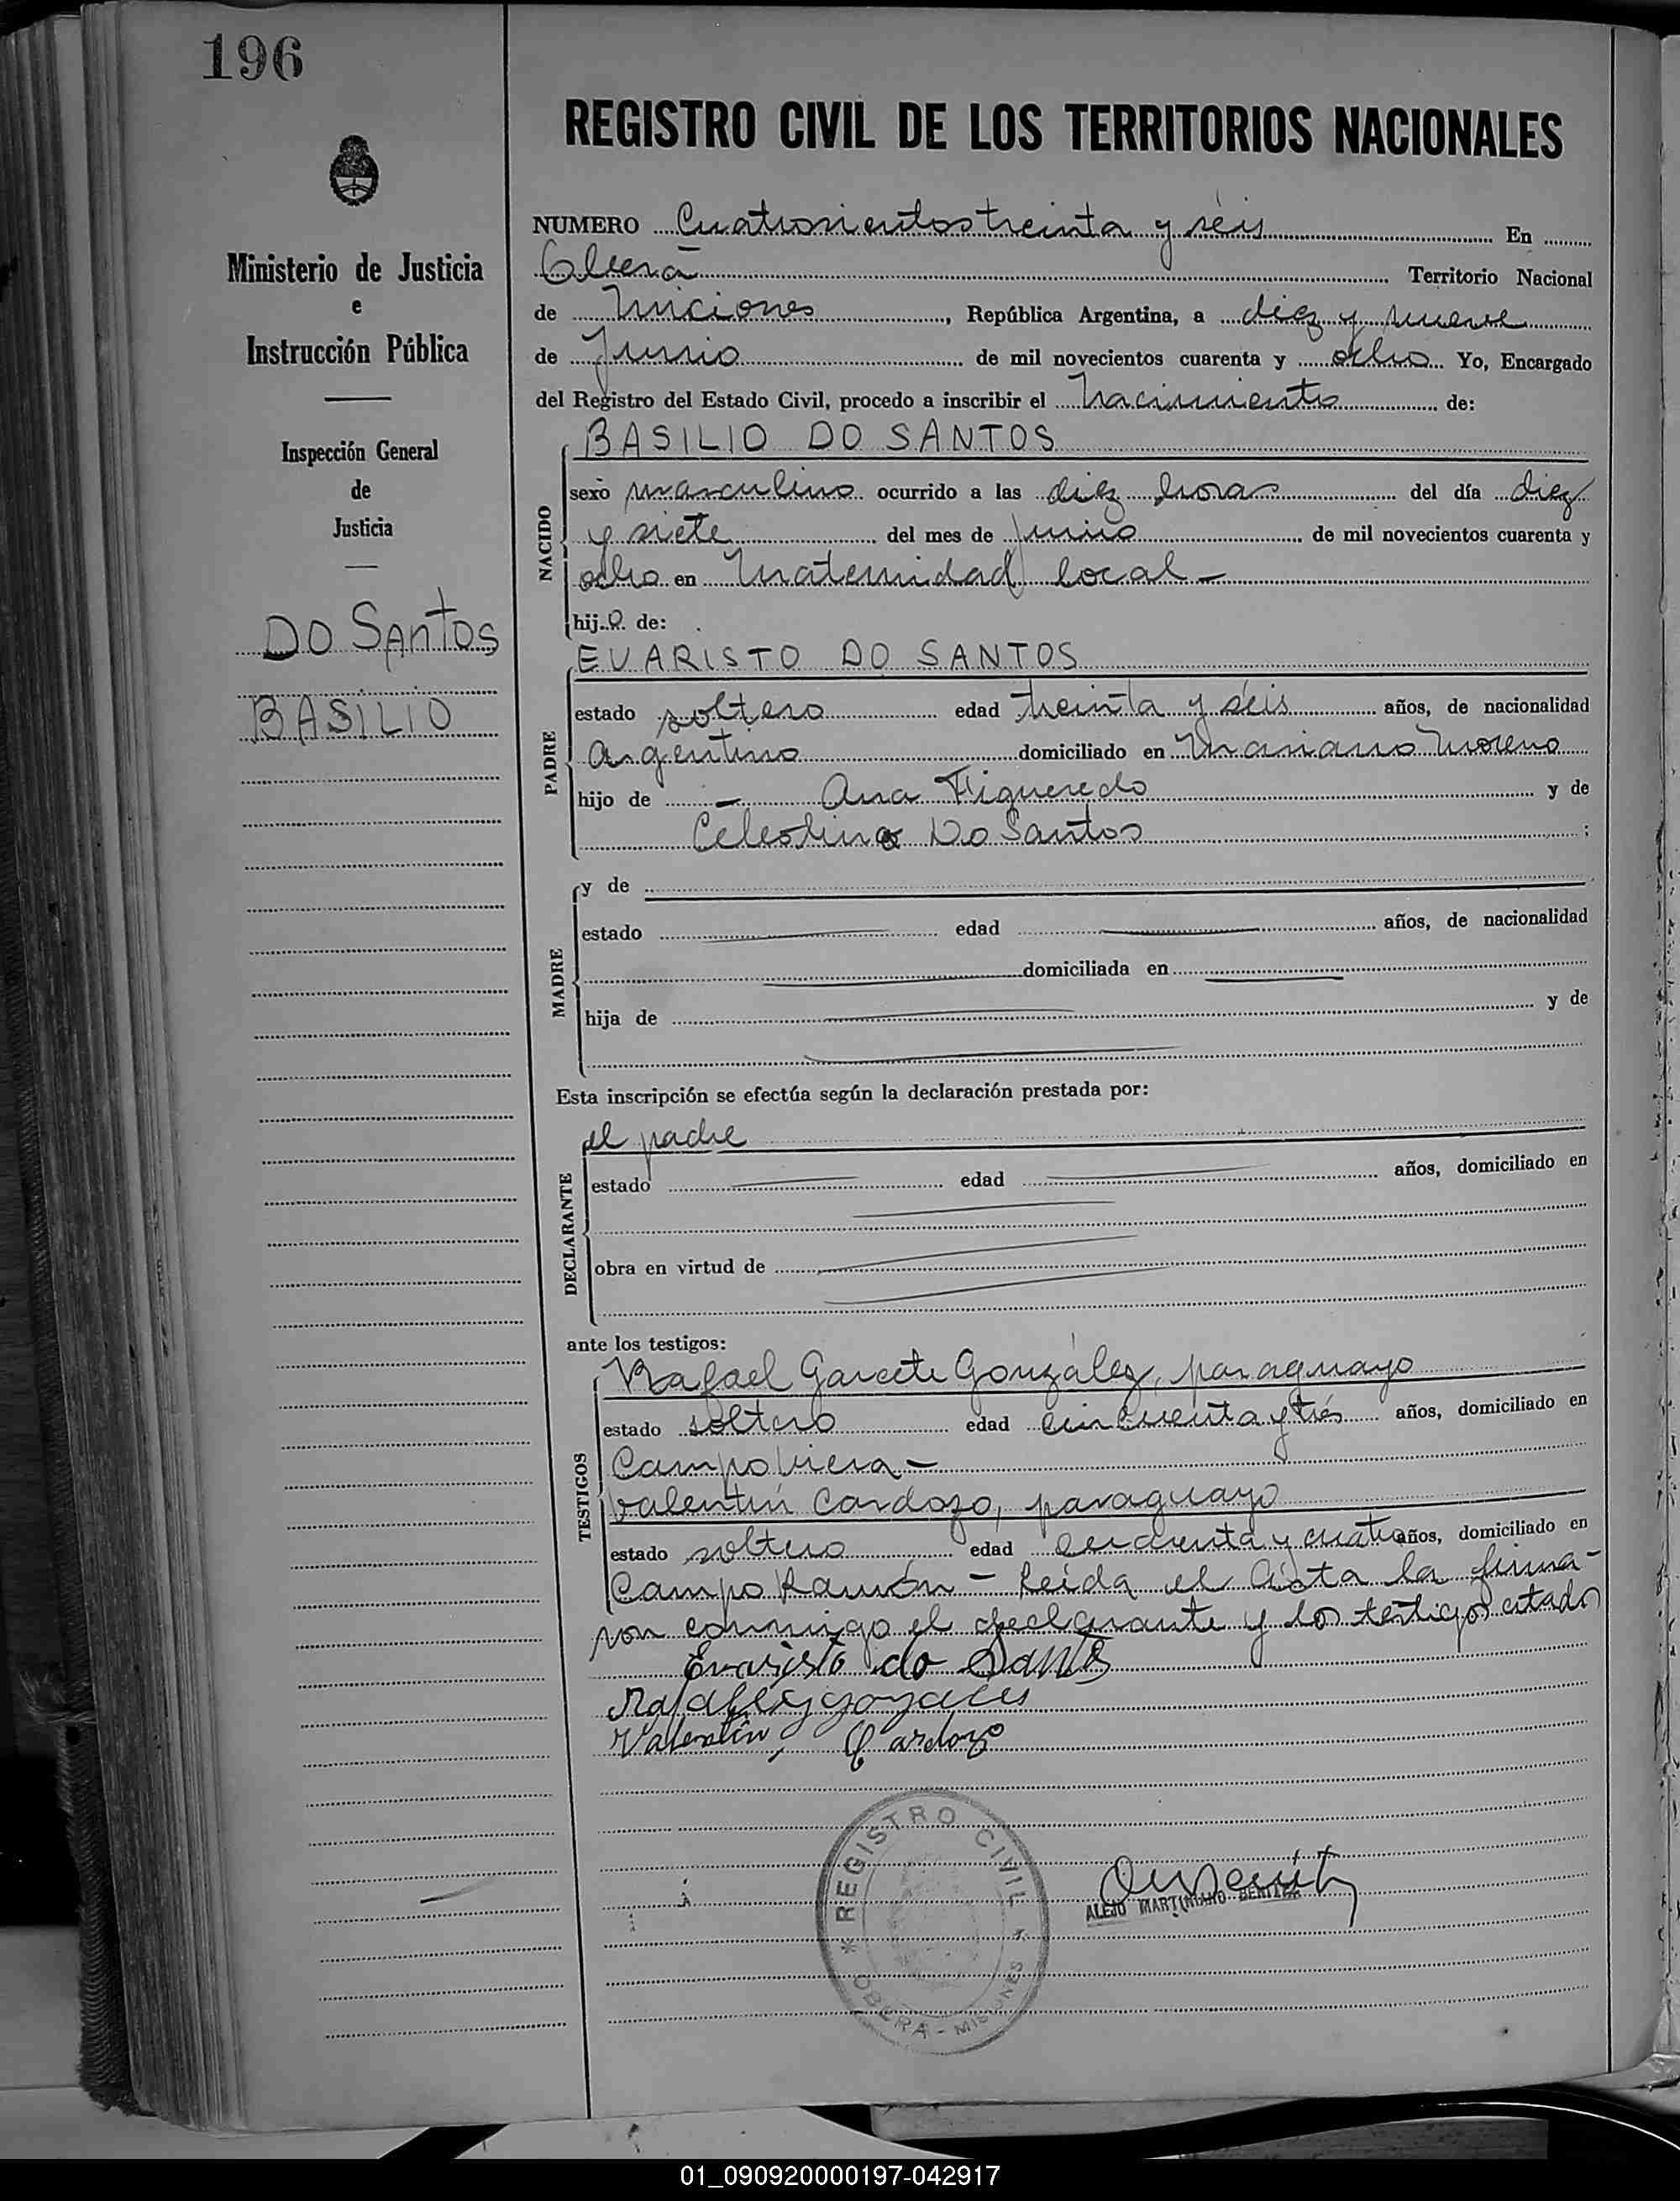 196
REGISTRO CIVIL DE LOS TERRITORIOS NACIONALES
Ministerio de Justicia
e
Instrucción Pública
Inspección General
de
Justicia
DO SANTOS
BASILIO
NUMERO Cuatrocientos treinta y séis En
Oberá Territorio Nacional
de Miciones, República Argentina, a diez y nueve
de Junio de mil novecientos cuarenta y ocho Yo, Encargado
del Registro del Estado Civil, procedo a inscribir el nacimiento de:
NACIDO
BASILIO DO SANTOS
sexo masculino ocurrido a las diez horas del día diez
y siete del mes de Junio de mil novecientos cuarenta y
ocho en Maternidad local -
hijo de:
PADRE
EVARISTO DO SANTOS
estado soltero edad treinta y séis años, de nacionalidad
Argentino domiciliado en Mariano Moreno
hijo de - Ana Figueredo y de
Celestino Do Santos ;
MADRE
y de
estado edad años, de nacionalidad
domiciliada en
hija de y de
Esta inscripción se efectúa según la declaración prestada por:
DECLARANTE
el padre
estado edad años, domiciliado en
obra en virtud de
ante los testigos:
TESTIGOS
Rafael Garcete González, paraguayo
estado soltero edad cincuenta y trés años, domiciliado en
Campo Viera -
Valentín Cardozo, paraguayo
estado soltero edad cincuenta y cuatro años, domiciliado en
Campo Ramón - Leída el Acta la firma-
ron conmigo el declarante y los testigos citados
Evaristo do Santos
Valentin Cardozo
REGISTRO CIVIL
OBERA - MISIONES
ALEJO MARTINIANO BENITEZ
01_090920000197-042917